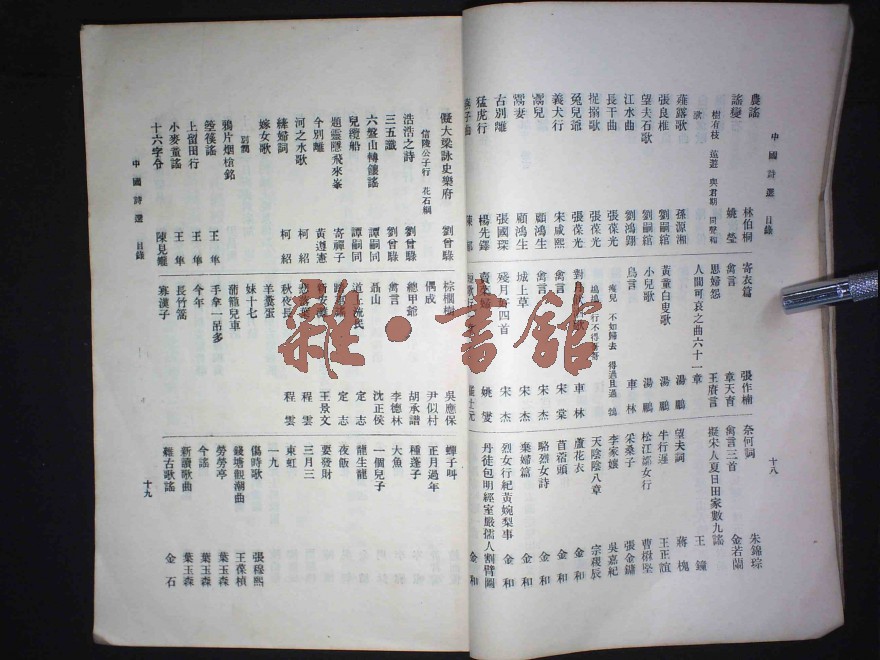 中國詩選 目錄
十八
農謠 林伯桐
謠變 姚瑩
薤露歌 孫源湘
張良椎 劉嗣綰
望夫石歌 劉嗣綰
江水曲 劉鴻翱
長干曲 張葆光
捉搦歌 張葆光
兔兒爺 張葆光
義犬行 宋咸熙
鬻兒 顧鴻生
鬻妻 顧鴻生
古別離 張國琛
猛虎行 楊先鐸
寄衣篇 張作楠
禽言 章天育
思婦怨 王賡言
人間可哀之曲六十一章
黃童白叟歌 湯鵬
小兒歌 湯鵬
鳥言 車林
車林
禽言 宋棠
城上草 宋杰
殘月 四首 宋杰
姚燮
奈何詞 朱錦琮
禽言三首 金若蘭
擬宋人夏日田家數九謠 王鐘
望夫詞 蔣槐
牛行遲 王正誼
松江邵女行 曹楙堅
采桑子 張金鏞
李家孃 吳嘉紀
天陰陰八章 宗稷辰
蘆花衣 金和
苜蓿頭 金和
略烈女詩 金和
棄婦篇 金和
烈女行紀黃婉梨事 金和
丹徒包明經室嚴儒人割臂圖 金和
擬大梁詠史樂府 劉曾騄
信陵公子行 花石綱
浩浩之詩 劉曾騄
三五讖 劉曾騄
六盤山轉饟謠 譚嗣同
兒纜船 譚嗣同
題靈隱飛來峯 寄禪子
今別離 黃遵憲
河之水歌 柯紹
絳婦詞 柯紹
嫁女歌
別調
鴉片烟槍銘
箜篌謠 王隼
上留田行 王隼
小麥童謠 王隼
十六字令 陳見鑨
棕櫚樹 吳應保
偶成 尹似村
總甲爺 胡承譜
禽言 李德林
聶山 沈正侯
道上流民 定志
定志
王景文
程雲
秋夜長 程雲
羊羹蛋
妹十七
蒲籠兒車
手拿一吊多
今年
長竹篙
寡漢子
蟬子叫
正月過年
種蓬子
大魚
一個兒子
龍生龍
夜飯
要發財
三月三
東虹
一九
傷時歌 張程熙
錢塘觀潮曲 王葆楨
勞勞亭 葉玉森
今謠 葉玉森
新讀歌曲 葉玉森
雜古歌謠 金石
中國詩選 目錄
十九
雜·書館